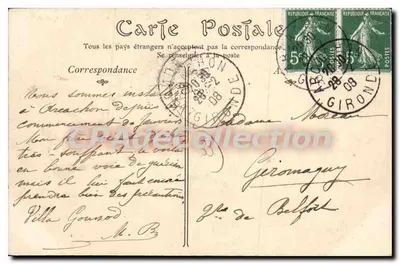 Carte Postale
Tous les pays étrangers n'acceptent pas la correspondance
Se renseigner à la poste
Correspondance
Nous sommes installés
à Arcachon depuis le
commencement de janvier
Mon
très souffrant, la voilà
en bonne voie de guérison
mais il lui faut encore
prendre bien des précautions
Villa Gounod
M. B
Madame
Giromagny
de Belfort
REPUBLIQUE FRANÇAISE
5c
REPUBLIQUE FRANÇAISE
5c
ARCACHON
28
08
GIRONDE
28
08
GIRONDE
collection